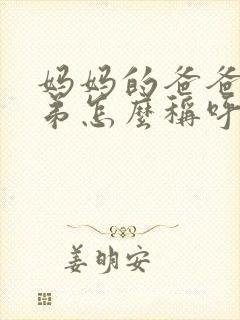 妈妈的爸爸
弟怎麽稱呼
姜明安